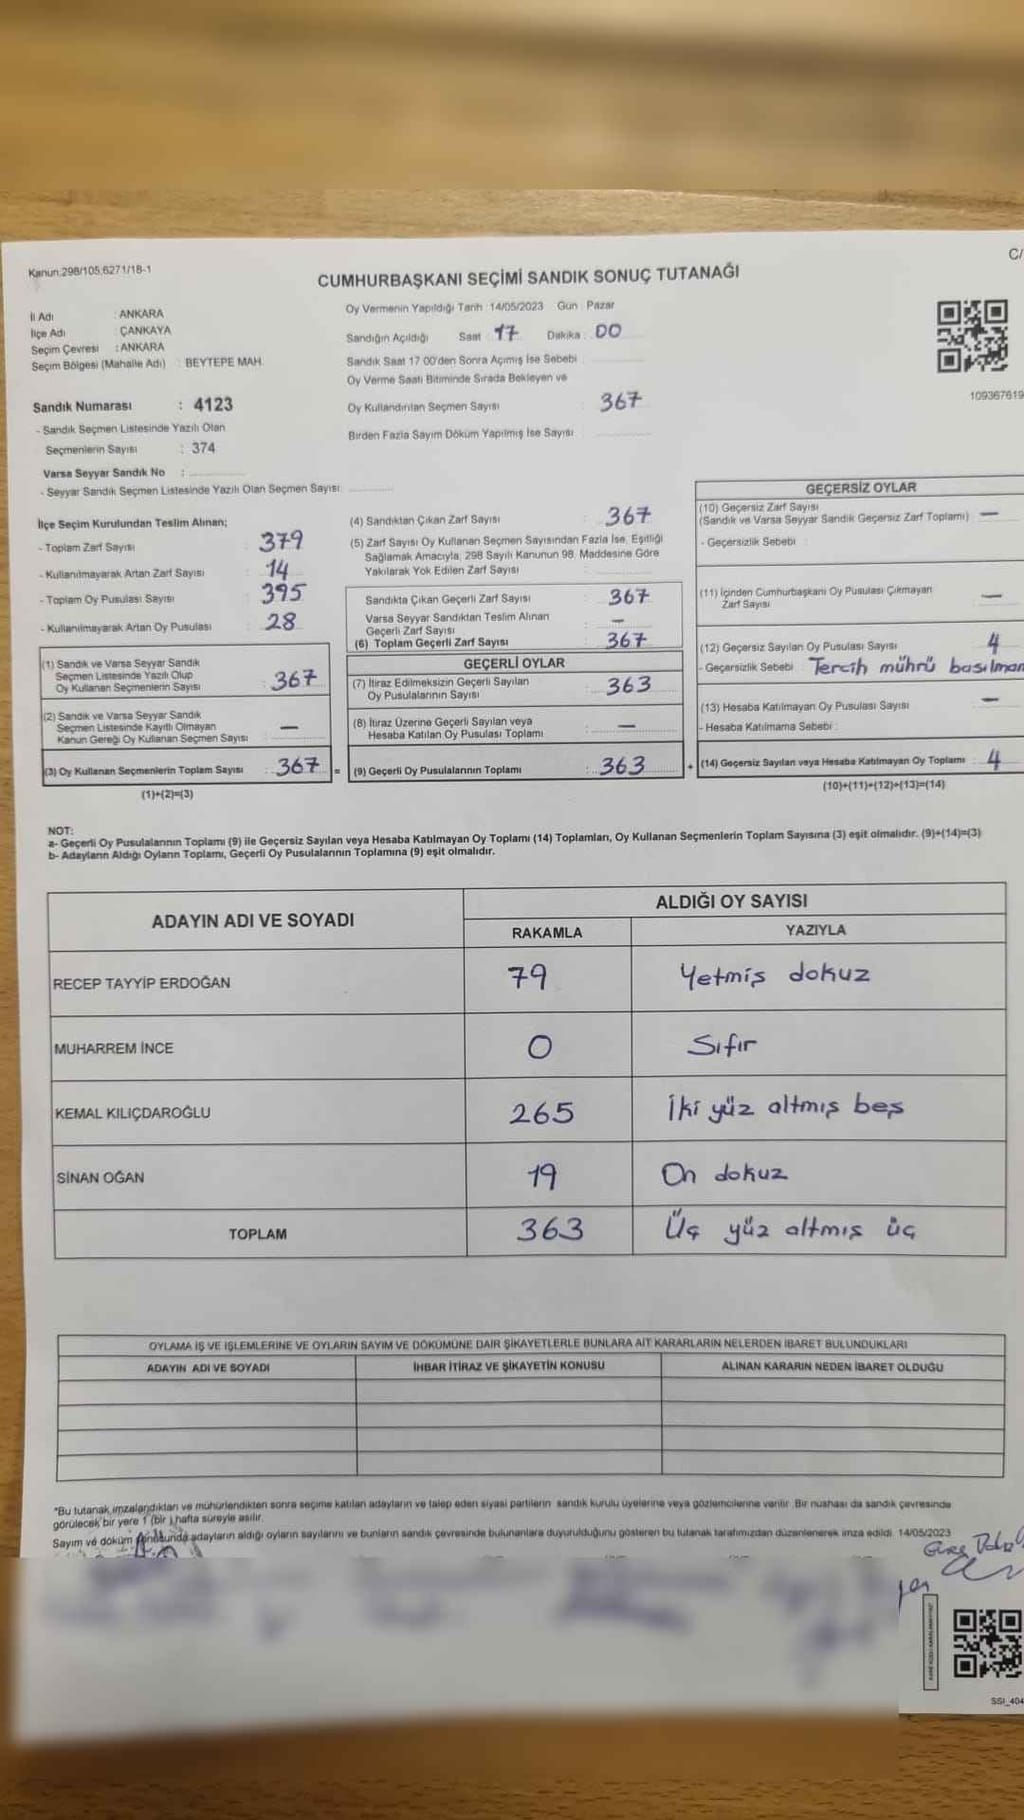 Kanun:298/105,6271/18-1
C/
CUMHURBAŞKANI SEÇİMİ SANDIK SONUÇ TUTANAĞI
İl Adı : ANKARA
İlçe Adı : ÇANKAYA
Seçim Çevresi : ANKARA
Seçim Bölgesi (Mahalle Adı) : BEYTEPE MAH.
Oy Vermenin Yapıldığı Tarih : 14/05/2023 Gün : Pazar
Sandığın Açıldığı Saat : 17 Dakika : 00
Sandık Saat 17:00'den Sonra Açımış İse Sebebi :
Oy Verme Saati Bitiminde Sırada Bekleyen ve
Oy Kullandırılan Seçmen Sayısı : 367
Birden Fazla Sayım Döküm Yapılmış İse Sayısı :
109367619
Sandık Numarası : 4123
- Sandık Seçmen Listesinde Yazılı Olan
Seçmenlerin Sayısı : 374
Varsa Seyyar Sandık No :
- Seyyar Sandık Seçmen Listesinde Yazılı Olan Seçmen Sayısı:
İlçe Seçim Kurulundan Teslim Alınan;
- Toplam Zarf Sayısı : 379
- Kullanılmayarak Artan Zarf Sayısı : 14
- Toplam Oy Pusulası Sayısı : 395
- Kullanılmayarak Artan Oy Pusulası : 28
(1) Sandık ve Varsa Seyyar Sandık
Seçmen Listesinde Yazılı Olup
Oy Kullanan Seçmenlerin Sayısı : 367
(2) Sandık ve Varsa Seyyar Sandık
Seçmen Listesinde Kayıtlı Olmayan
Kanun Gereği Oy Kullanan Seçmen Sayısı : —
(3) Oy Kullanan Seçmenlerin Toplam Sayısı : 367 =
(1)+(2)=(3)
(4) Sandıktan Çıkan Zarf Sayısı : 367
(5) Zarf Sayısı Oy Kullanan Seçmen Sayısından Fazla İse, Eşitliği
Sağlamak Amacıyla, 298 Sayılı Kanunun 98. Maddesine Göre
Yakılarak Yok Edilen Zarf Sayısı :
Sandıkta Çıkan Geçerli Zarf Sayısı : 367
Varsa Seyyar Sandıktan Teslim Alınan
Geçerli Zarf Sayısı : —
(6) Toplam Geçerli Zarf Sayısı : 367
GEÇERLİ OYLAR
(7) İtiraz Edilmeksizin Geçerli Sayılan
Oy Pusulalarının Sayısı : 363
(8) İtiraz Üzerine Geçerli Sayılan veya
Hesaba Katılan Oy Pusulası Toplamı : —
(9) Geçerli Oy Pusulalarının Toplamı : 363 +
GEÇERSİZ OYLAR
(10) Geçersiz Zarf Sayısı
(Sandık ve Varsa Seyyar Sandık Geçersiz Zarf Toplamı) —
- Geçersizlik Sebebi :
(11) İçinden Cumhurbaşkanı Oy Pusulası Çıkmayan
Zarf Sayısı : —
(12) Geçersiz Sayılan Oy Pusulası Sayısı : 4
- Geçersizlik Sebebi : Tercih mührü basılmam
(13) Hesaba Katılmayan Oy Pusulası Sayısı : —
- Hesaba Katılmama Sebebi :
(14) Geçersiz Sayılan veya Hesaba Katılmayan Oy Toplamı : 4
(10)+(11)+(12)+(13)=(14)
NOT:
a- Geçerli Oy Pusulalarının Toplamı (9) ile Geçersiz Sayılan veya Hesaba Katılmayan Oy Toplamı (14) Toplamları, Oy Kullanan Seçmenlerin Toplam Sayısına (3) eşit olmalıdır. (9)+(14)=(3)
b- Adayların Aldığı Oyların Toplamı, Geçerli Oy Pusulalarının Toplamına (9) eşit olmalıdır.
ADAYIN ADI VE SOYADI
ALDIĞI OY SAYISI
RAKAMLA YAZIYLA
RECEP TAYYİP ERDOĞAN 79 Yetmiş dokuz
MUHARREM İNCE 0 Sıfır
KEMAL KILIÇDAROĞLU 265 İki yüz altmış beş
SİNAN OĞAN 19 On dokuz
TOPLAM 363 Üç yüz altmış üç
OYLAMA İŞ VE İŞLEMLERİNE VE OYLARIN SAYIM VE DÖKÜMÜNE DAİR ŞİKAYETLERLE BUNLARA AİT KARARLARIN NELERDEN İBARET BULUNDUKLARI
ADAYIN ADI VE SOYADI İHBAR İTİRAZ VE ŞİKAYETİN KONUSU ALINAN KARARIN NEDEN İBARET OLDUĞU
*Bu tutanak imzalandıktan ve mühürlendikten sonra seçime katılan adayların ve talep eden siyasi partilerin sandık kurulu üyelerine veya gözlemcilerine verilir. Bir nüshası da sandık çevresinde
görülecek bir yere 1 (bir ) hafta süreyle asılır.
Sayım ve döküm sonucunda adayların aldığı oyların sayılarını ve bunların sandık çevresinde bulunanlara duyurulduğunu gösteren bu tutanak tarafımızdan düzenlenerek imza edildi. 14/05/2023
SSI_404